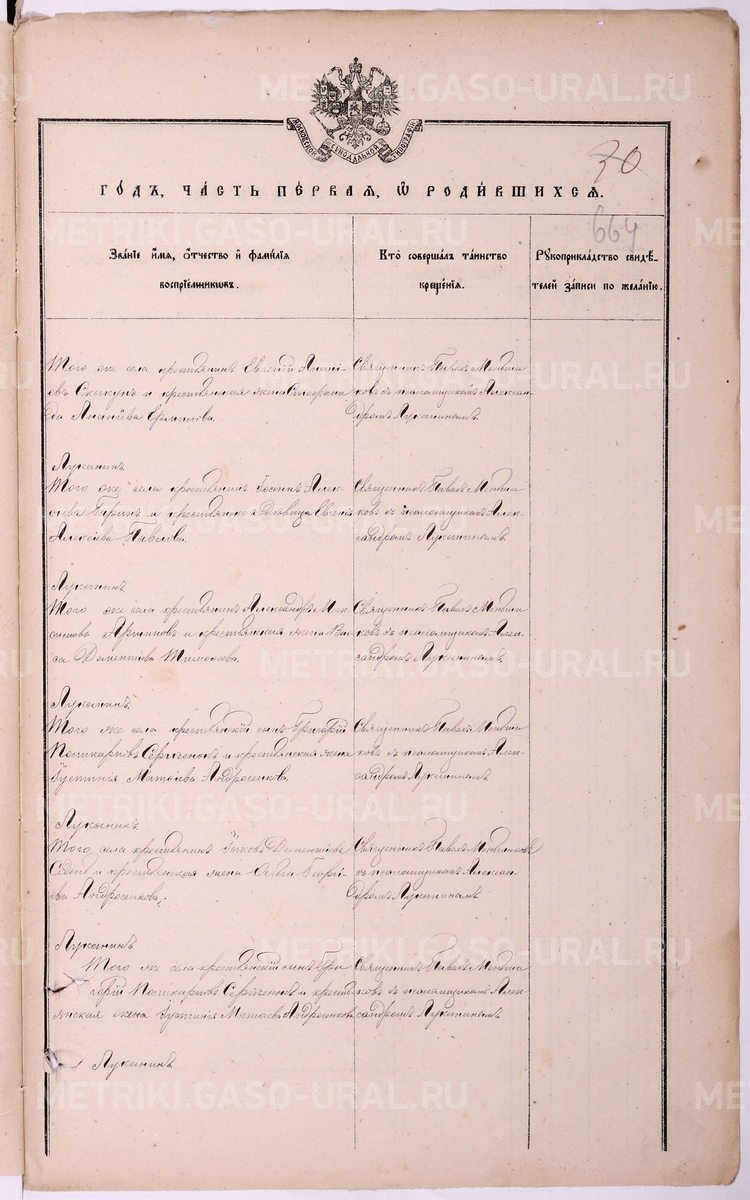 МОСКОВСКОЙ СѴНОДАЛЬНОЙ ТИПОГРАФІИ
30
ГО́ДЪ, ЧА́СТЬ ПЕ́РВАЯ, Ѡ҆ РОДИ́ВШИХСЯ.
664
Зва́нїе и҆́мя, ѻ҆́тчество и҆ фамилїя
воспрїе́мниковъ.
Кто̀ соверша́лъ та́инство
креще́нїя.
Рꙋкоприкла́дство свидѣ́-
телей за́писи по жела́нїю.
Того же села крестьянинъ Евгеній Анани-
евъ Скакунъ и крестьянская жена Стефани-
да Ананіева Ермилова.
Священникъ Павелъ Меньши-
ковъ съ псаломщикомъ Алексан-
дромъ Луканинымъ.
Луканинъ.
Того же села крестьянинъ Іоаннъ Алек-
сѣевъ Гаринъ и крестьянская дѣвица Евгенія
Алексѣева Павлова.
Священникъ Павелъ Меньши-
ковъ съ псаломщикомъ Алек-
сандромъ Луканинымъ.
Луканинъ.
Того же села крестьянинъ Александръ Мак-
симовъ Артиновъ и крестьянская жена Вас-
са Дементіева Тимофеева.
Священникъ Павелъ Меньши-
ковъ съ псаломщикомъ Алек-
сандромъ Луканинымъ.
Луканинъ.
Того же села крестьянскій сынъ Григорій
Поликарповъ Сергѣенокъ и крестьянская жена
Іустинія Матѳіева Андросенкова.
Священникъ Павелъ Меньши-
ковъ съ псаломщикомъ Алек-
сандромъ Луканинымъ.
Луканинъ.
Того села крестьянинъ Іаковъ Дементіевъ
и крестьянская жена Ольга Георгі-
ева Андросенкова.
Священникъ Павелъ Меньшиковъ
съ псаломщикомъ Алексан-
дромъ Луканинымъ.
Луканинъ.
Того же села крестьянскій сынъ Гри-
горій Поликарповъ Сергѣенокъ и кресть-
янская жена Іустинія Матѳіева Андросенкова
Священникъ Павелъ Меньши-
ковъ съ псаломщикомъ Алек-
сандромъ Луканинымъ.
Луканинъ.
METRIKI.GASO-URAL.RU